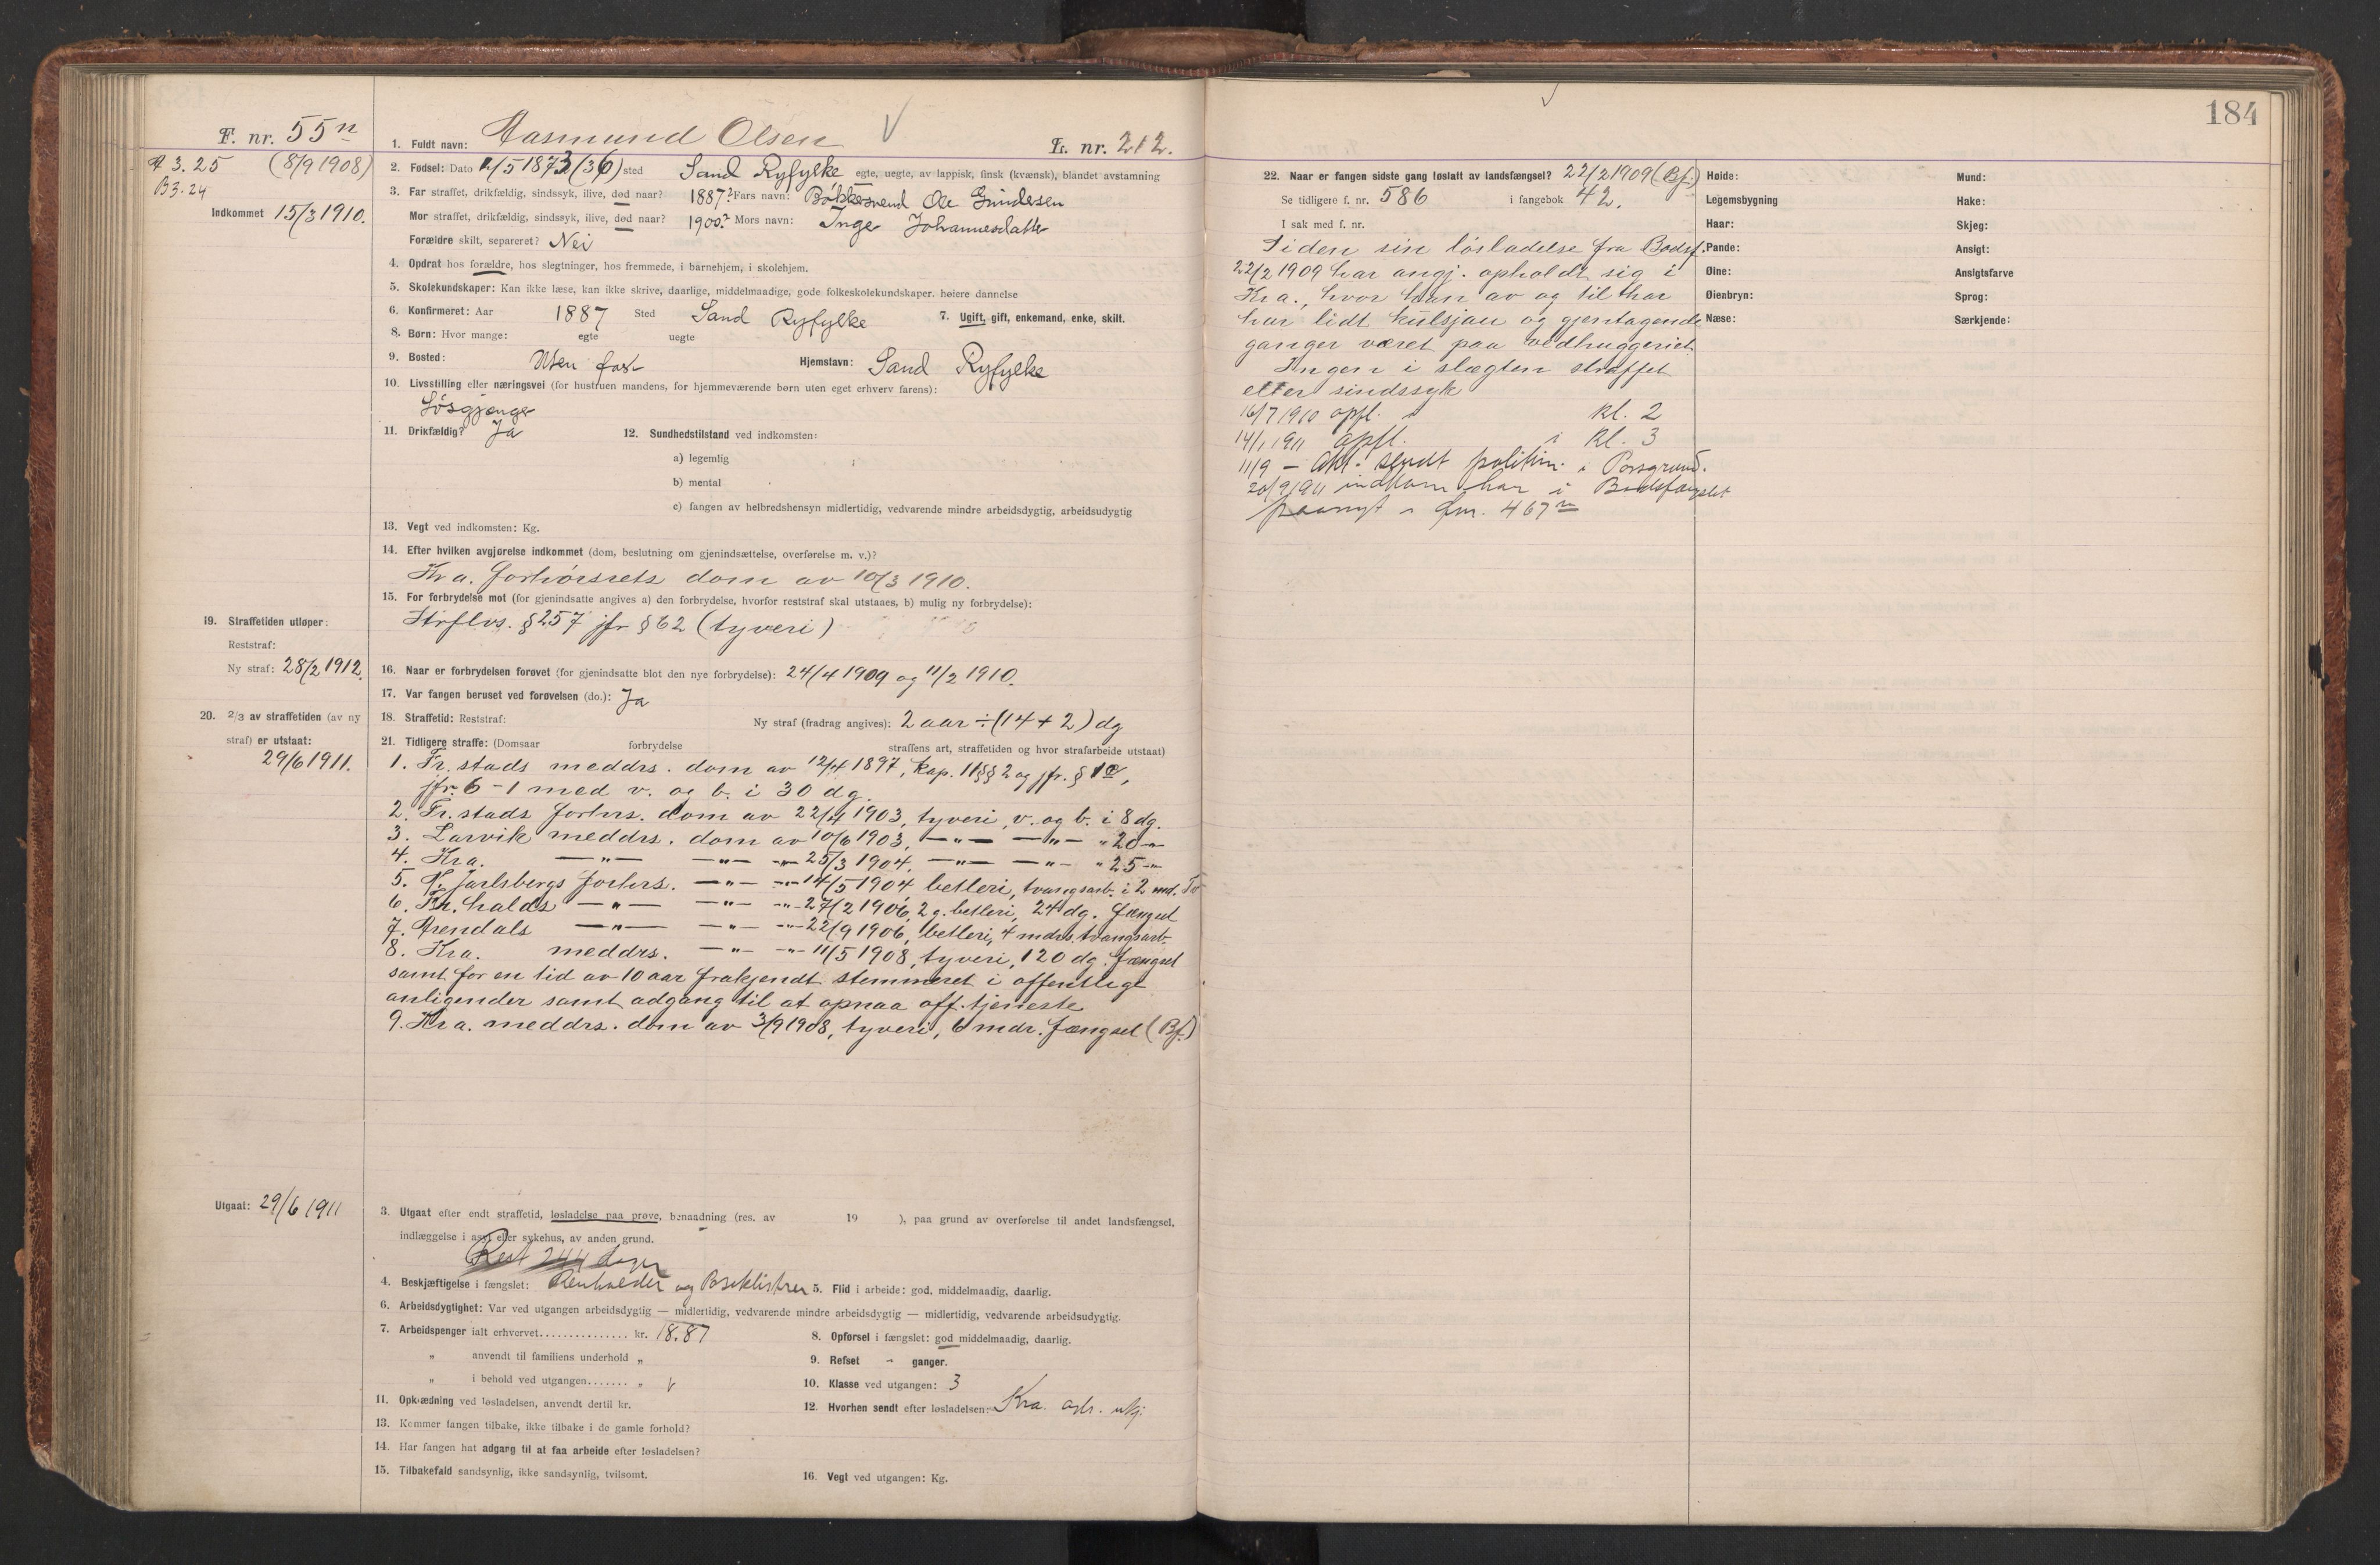 184
F. nr. 55n
A 3.25 (8/9 1908)
B3.24
Indkommet 15/3 1910.
1. Fuldt navn: Aasmund Olsen L. nr. 212.
2. Fødsel: Dato 11/5 1873 (36) sted Sand Ryfylke egte, uegte, av lappisk, finsk (kvænsk), blandet avstamning
3. Far straffet, drikfældig, sindssyk, ilive, død naar? 1887? Fars navn: Bøkkersvend Ole Gundersen
Mor straffet, drikfældig, sindssyk, ilive, død naar? 1900? Mors navn: Inge Johannesdatter
Forældre skilt, separeret? Nei
4. Opdrat hos forældre, hos slegtninger, hos fremmede, i barnehjem, i skolehjem.
5. Skolekundskaper: Kan ikke læse, kan ikke skrive, daarlige, middelmaadige, gode folkeskolekundskaper. høiere dannelse
6. Konfirmeret: Aar 1887 Sted Sand Ryfylke 7. Ugift, gift, enkemand, enke, skilt.
8. Børn: Hvor mange: egte uegte
9. Bosted: Uten fast Hjemstavn: Sand Ryfylke
10. Livsstilling eller næringsvei (for hustruen mandens, for hjemmeværende børn uten eget erhverv farens):
Løsgjænger
11. Drikfældig? Ja 12. Sundhedstilstand ved indkomsten:
a) legemlig
b) mental
c) fangen av helbredshensyn midlertidig, vedvarende mindre arbeidsdygtig, arbeidsudygtig
13. Vegt ved indkomsten: Kg.
14. Efter hvilken avgjørelse indkommet (dom, beslutning om gjenindsættelse, overførelse m. v.)?
Kra. forhørsrets dom av 10/3 1910.
15. For forbrydelse mot (for gjenindsatte angives a) den forbrydelse, hvorfor reststraf skal utstaaes, b) mulig ny forbrydelse):
Strflvs. § 257 jfr § 62 (tyveri)
19. Straffetiden utløper:
Reststraf:
Ny straf: 28/2 1912.
16. Naar er forbrydelsen forøvet (for gjenindsatte blot den nye forbrydelse): 24/4 1909 og 11/2 1910.
17. Var fangen beruset ved forøvelsen (do.): Ja
20. 2/3 av straffetiden (av ny
straf) er utstaat:
29/6 1911.
18. Straffetid: Reststraf: Ny straf (fradrag angives): 2 aar ÷ (14 + 2) dg
21. Tidligere straffe: (Domsaar forbrydelse straffens art, straffetiden og hvor strafarbeide utstaat)
1. Fr. stads meddrs. dom av 12/4 1897, kap. 11 §§ 2 og jfr. § 1
jfr. 6-1 med v. og b. i 30 dg.
2. Fr. stads forhrs. dom av 22/4 1903, tyveri, v. og b. i 8 dg.
3. Larvik meddrs. dom av 10/6 1903, —"— —"— " 20 -"-
4. Kra. —"— —"— -"- 25/3 1904, —"— —"— " 25 -"-
5. N. Jarlsbergs forhrs. —"— -"- 14/5 1904 betleri, tvangsarb. i 2 md.
6. Fr. halds —"— —"— -"- 27/2 1906, 2 g. betleri, 24 dg. fængsel
7. Arendals —"— —"— -"- 22/9 1906, betleri, 4 mdrs. tvangsarb.
8. Kra. meddrs. —"— -"- 11/5 1908, tyveri, 120 dg. fængsel
samt for en tid av 10 aar frakjendt stemmeret i offentlige
anligender samt adgang til at opnaa off. tjeneste
9. Kra. meddrs. dom av 3/9 1908, tyveri, 6 mdr. fængsel (Bf.)
Utgaat: 29/6 1911
3. Utgaat efter endt straffetid, løsladelse paa prøve, benaadning (res. av 19 ), paa grund av overførelse til andet landsfængsel,
indlæggelse i asyl eller sykehus, av anden grund.
Rest 244 dager
4. Beskjæftigelse i fængslet: Renholder og 5. Flid i arbeide: god, middelmaadig, daarlig.
6. Arbeidsdygtighet: Var ved utgangen arbeidsdygtig — midlertidig, vedvarende mindre arbeidsdygtig — midlertidig, vedvarende arbeidsudygtig.
7. Arbeidspenger ialt erhvervet............... kr. 18.87 8. Opførsel i fængslet: god middelmaadig, daarlig.
" anvendt til familiens underhold " 9. Refset - ganger.
" i behold ved utgangen....... " 10. Klasse ved utgangen: 3
11. Opklædning ved løsladelsen, anvendt dertil kr. 12. Hvorhen sendt efter løsladelsen: Kra. adr. ukj.
13. Kommer fangen tilbake, ikke tilbake i de gamle forhold?
14. Har fangen hat adgang til at faa arbeide efter løsladelsen?
15. Tilbakefald sandsynlig, ikke sandsynlig, tvilsomt. 16. Vegt ved utgangen: Kg.
22. Naar er fangen sidste gang løslatt av landsfængsel? 22/2 1909 (Bf.)
Se tidligere f. nr. 586 i fangebok 42.
I sak med f. nr.
Siden sin løsladelse fra Bodsf.
22/2 1909 har angj. opholdt sig i
Kra., hvor han av og til har
har lidt kulsjau og gjentagende
ganger været paa vedhuggeriet.
Ingen i slægten straffet
eller sindssyk
16/7 1910 opfl. i kl. 2
14/1 1911 opfl. i kl. 3
11/9 — Akt. sendt politim. i Porsgrund.
20/9 1911 indkom han i Bodsfængslet
paanyt i fnr. 467n
Høide: Mund:
Legemsbygning Hake:
Haar: Skjeg:
Pande: Ansigt:
Øine: Ansigtsfarve
Øienbryn: Sprog:
Næse: Særkjende: